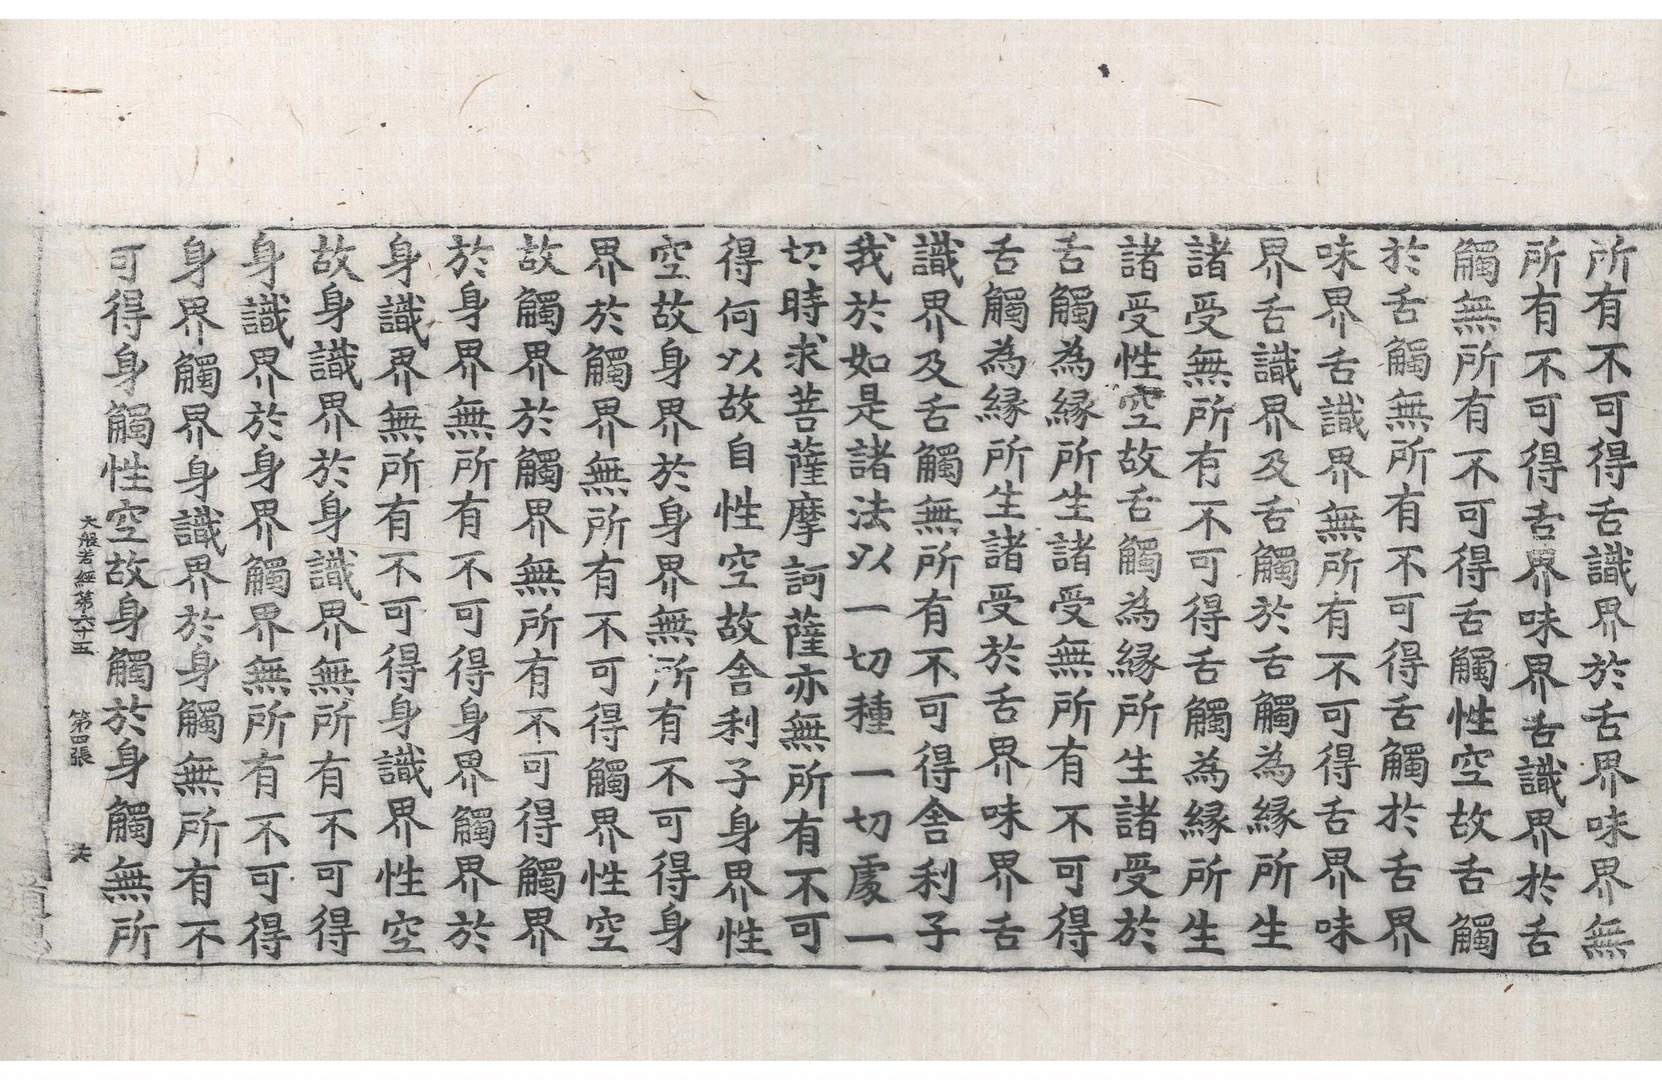 所有不可得舌識界於舌界味界無
所有不可得舌界味界舌識界於舌
觸無所有不可得舌觸性空故舌觸
於舌觸無所有不可得舌觸於舌界
味界舌識界無所有不可得舌界味
界舌識界及舌觸於舌觸為縁所生
諸受無所有不可得舌觸為縁所生
諸受性空故舌觸為縁所生諸受於
舌觸為縁所生諸受無所有不可得
舌觸為縁所生諸受於舌界味界舌
識界及舌觸無所有不可得舍利子
我於如是諸法以一切種一切處一
切時求菩薩摩訶薩亦無所有不可
得何以故自性空故舍利子身界性
空故身界於身界無所有不可得身
界於觸界無所有不可得觸界性空
故觸界於觸界無所有不可得觸界
於身界無所有不可得身界觸界於
身識界無所有不可得身識界性空
故身識界於身識界無所有不可得
身識界於身界觸界無所有不可得
身界觸界身識界於身觸無所有不
可得身觸性空故身觸於身觸無所
大般若經第六十五 第四張